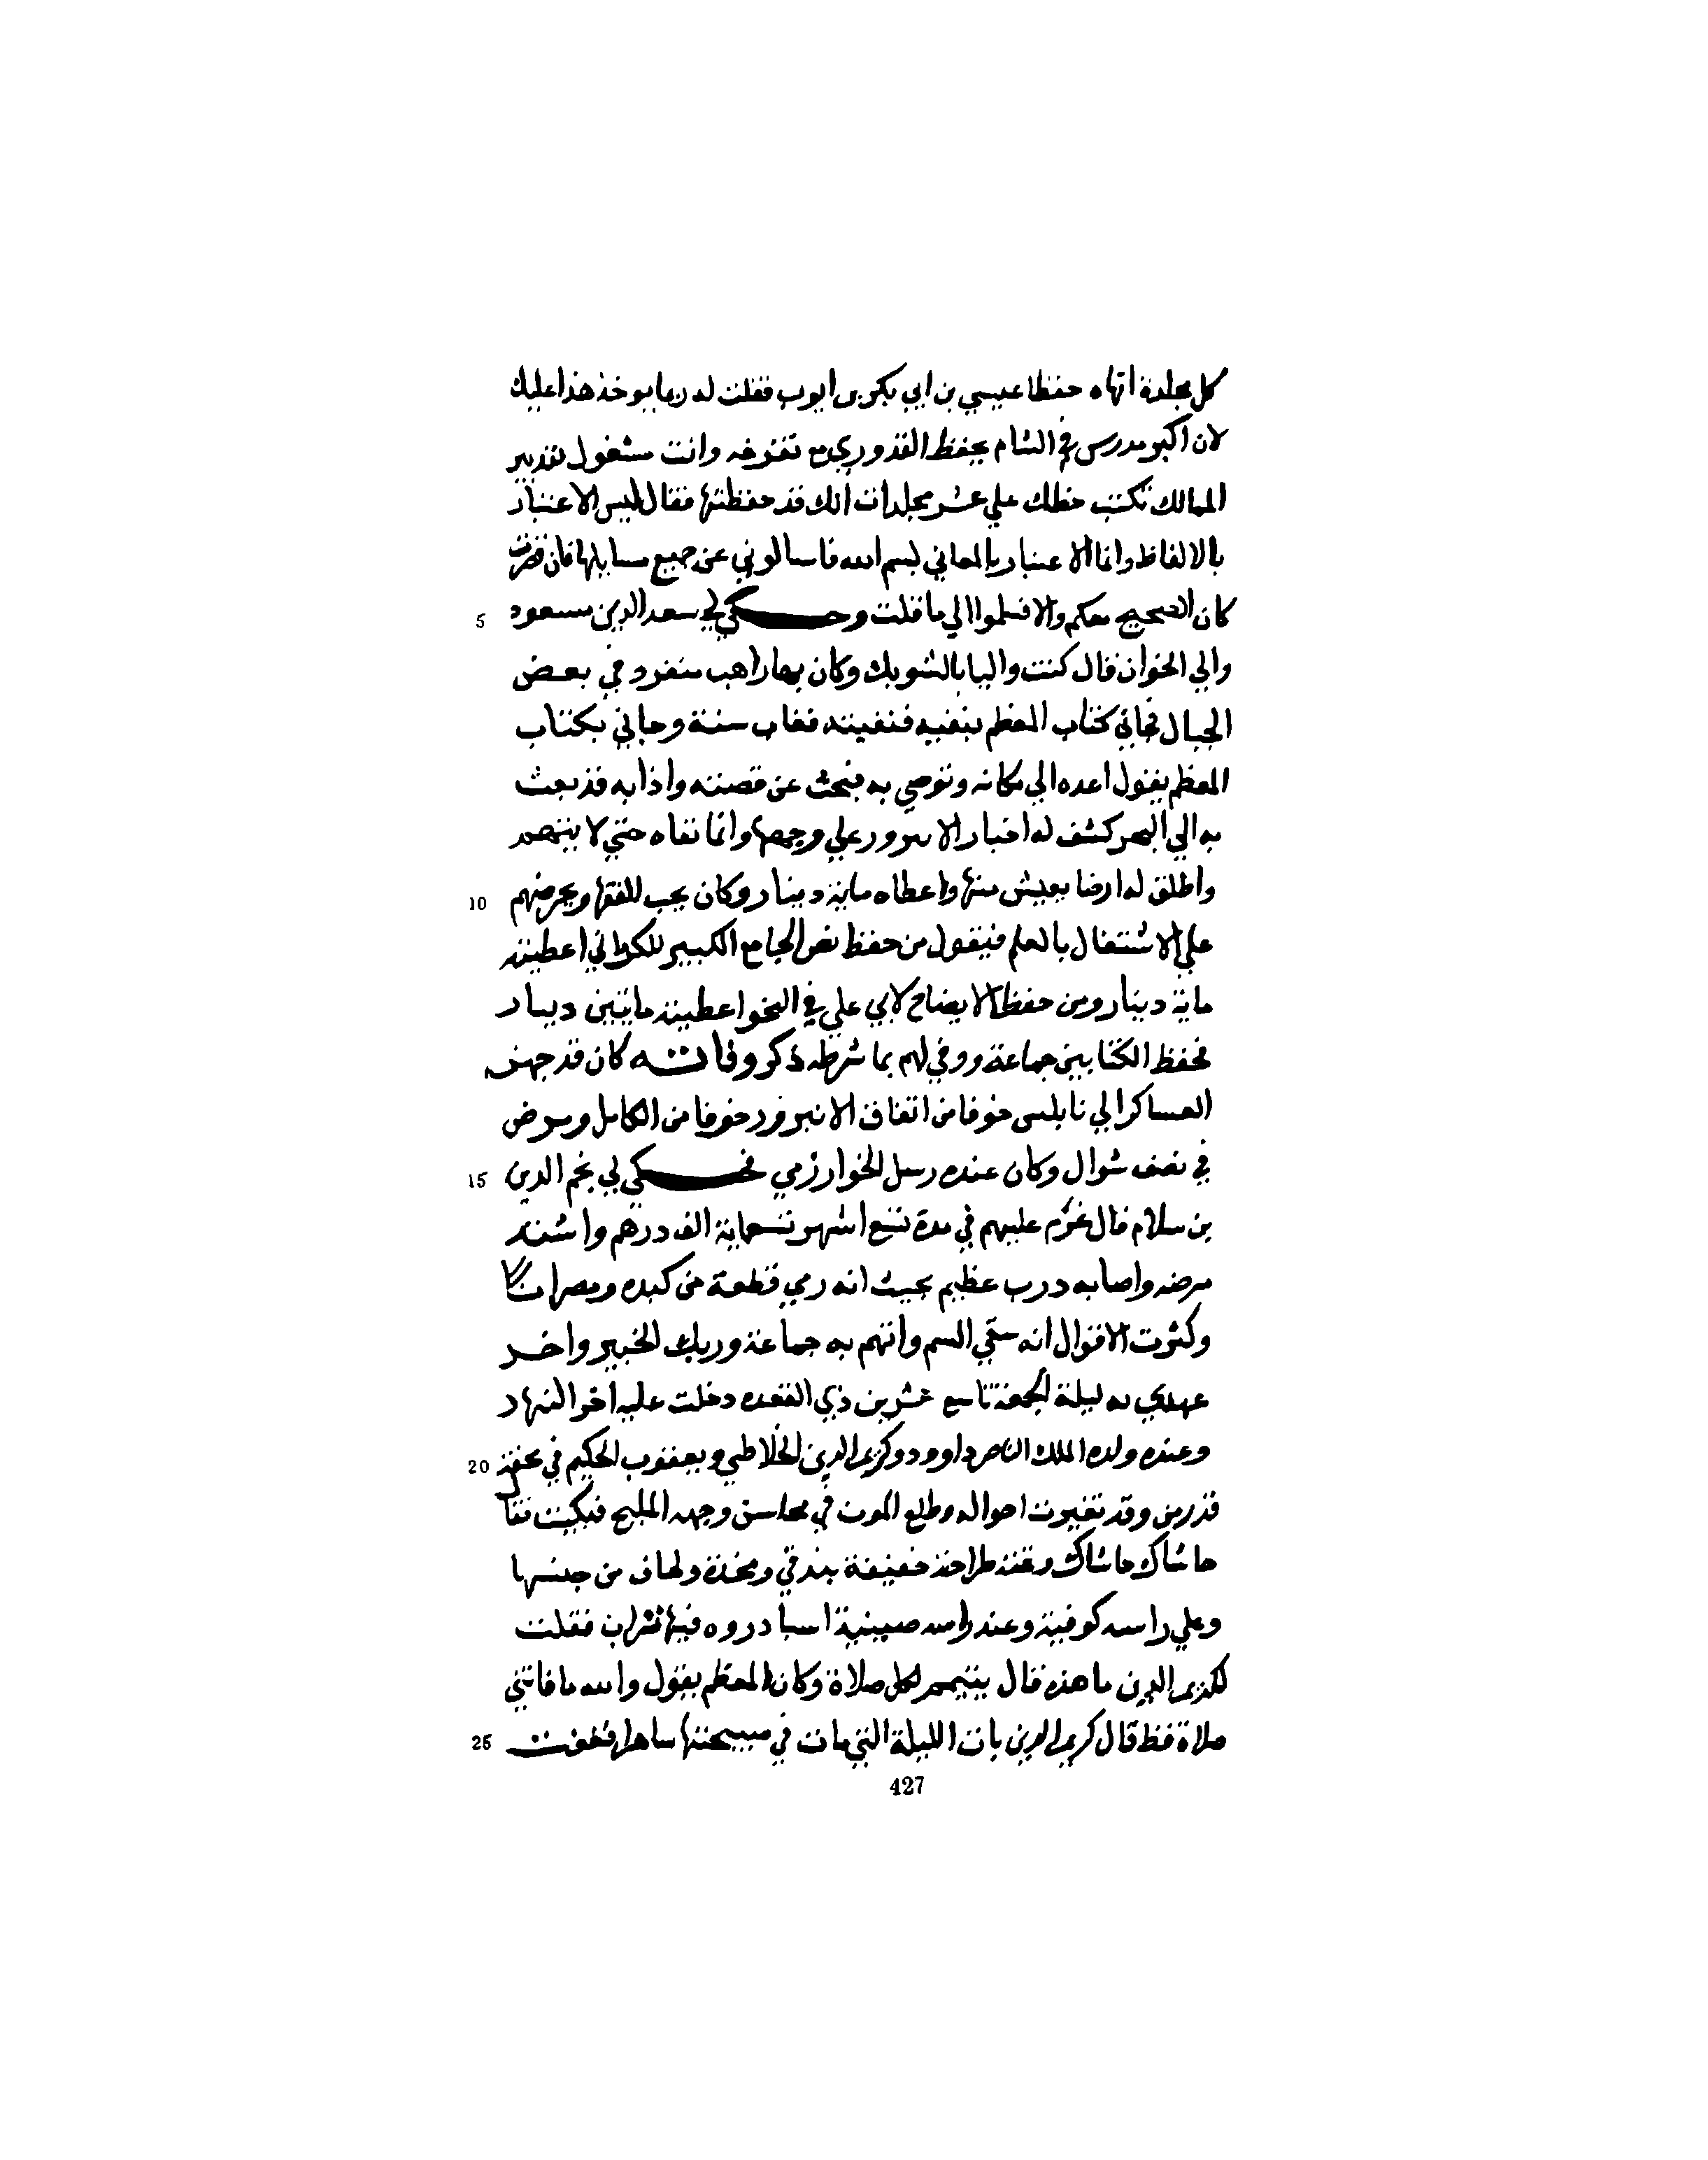 كل مجلدة انهاه حفظا عيسي بن ابي بكر بن ايوب فقلت له ربما يوخذ هذا عليك
لان اكبر مدرس في الشام يحفظ القدوري مع تفرغه وانت مشغول بتدبير
الممالك تكتب خطك علي عشر مجلدات انك قد حفظتها فقال ليس الاعتبار
بالالفاظ وانما الاعتبار بالمعاني بسم الله فاسالوني عن جميع مسايلها فان قصرت
كان الصحيح معكم والا فسلموا الي ما قلت وحكي لي سعد الدين مسعود
والي الخوان قال كنت واليا بالشوبك وكان بها راهب منفرد في بعض
الجبال فجاني كتاب المعظم بنفيه فنفيته فغاب سنة وجاني بكتاب
المعظم يقول اعده الي مكانه وتوصي به فبحث عن قصته واذا به قد بعث
به الي البحر كشف له اخبار الانبرور علي وجهها وانما نفاه حتي لا يتهم
واطلق له ارضا يعيش منها واعطاه ماية دينار وكان يحب للفقها ويحرضهم
علي الاشتغال بالعلم فيقول من حفظ نص الجامع الكبير للكرماني اعطيته
ماية دينار ومن حفظ الايضاح لابي علي في النحو اعطيته مايتين دينار
فحفظ الكتابين جماعة ووفي لهم بما شرطه ذكر وفاته كان قد جهز
العساكر الي نابلس خوفا من اتفاق الانبرور خوفا من الكامل ومرض
في نصف شوال وكان عنده رسل الخوارزمي فحكي لي نجم الدين
بن سلام قال غرم عليهم في مدة تسع اشهر تسعماية الف درهم واشتد
مرضه واصابه درب عظيم بحيث انه رمي قطعة من كبده ومصرانا
وكثرت الاقوال انه سقي السم واتهم به جماعة وربك الخبير واخر
عهدي به ليلة الجمعة تاسع عشرين ذي القعده دخلت عليه اخر النهار
وعنده ولده الملك الناصر داوود وكريم الدين الخلاطي ويعقوب الحكيم في محفة
قد رمن وقد تغيرت احواله وطلع الموت في محاسن وجهه المليح فبكيت فقال
حاشاك حاشاك وتحته طراحة خفيفة بندقي ومخدة ولحاف من جنسها
وعلي راسه كوفية وعند راسه صينية اسبادروه فيها تراب فقلت
لكريم الدين ما هذه قال يتيمم لكل صلاة وكان المعظم يقول والله ما فاتتني
صلاة قط قال كريم الدين بات الليلة التي مات في صبيحتها ساهرا فغفوت
5
10
15
20
25
427